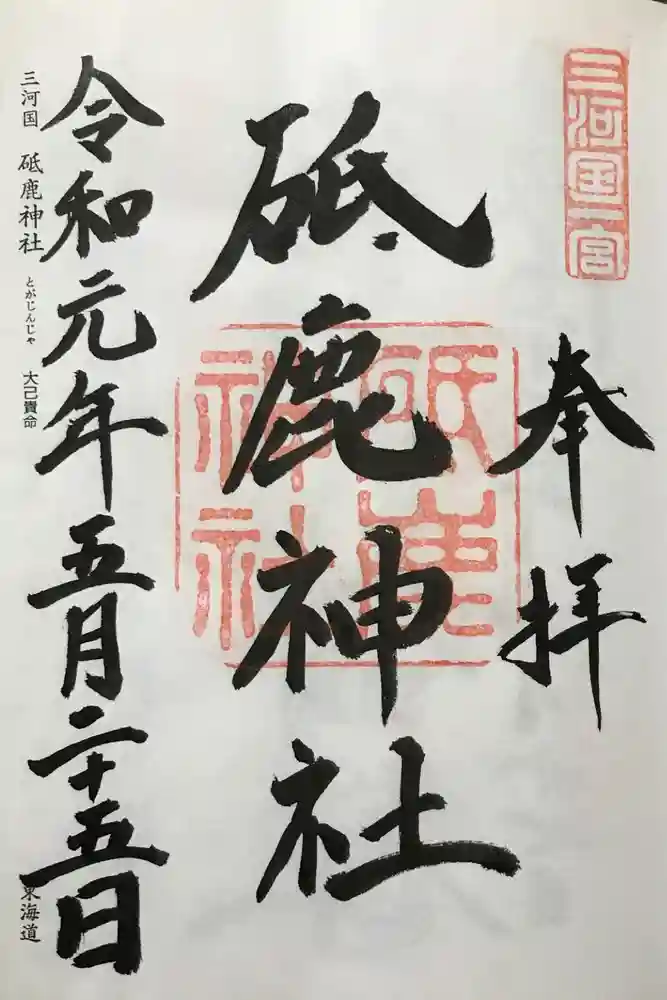 三河国一宮
奉拝
砥鹿神社
砥鹿神社
令和元年五月二十五日
三河国 砥鹿神社 とがじんじゃ 大己貴命 東海道